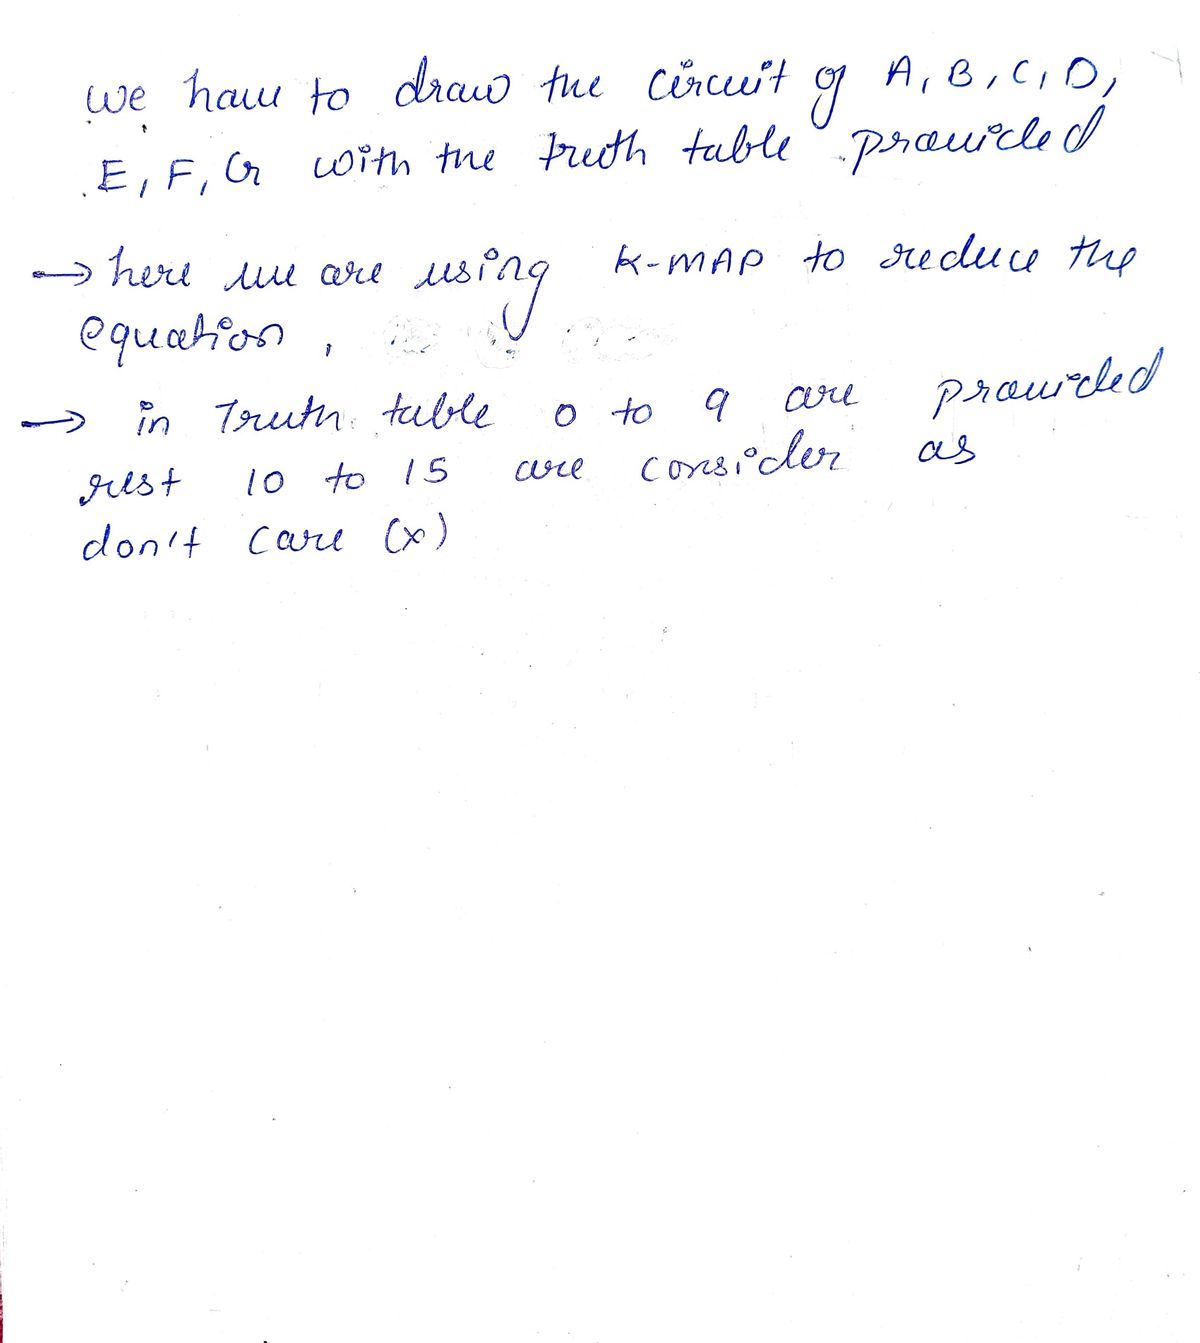 we have to draw the circuit of A, B, C, D,
E, F, G with the truth table provided
→ here we are using K-MAP to reduce the
equation,
→ in Truth table 0 to 9 are provided
rest 10 to 15 are consider as
don't care (x)